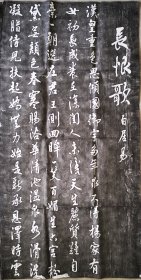 長恨歌
白居易
漢皇重色思傾國御宇多年求不得楊家有
女初長成養在深閨人未識天生麗質難自
棄一朝選在君王側回眸一笑百媚生六宮粉
黛無顏色春寒賜浴華清池溫泉水滑洗
凝脂侍兒扶起嬌無力始是新承恩澤時雲